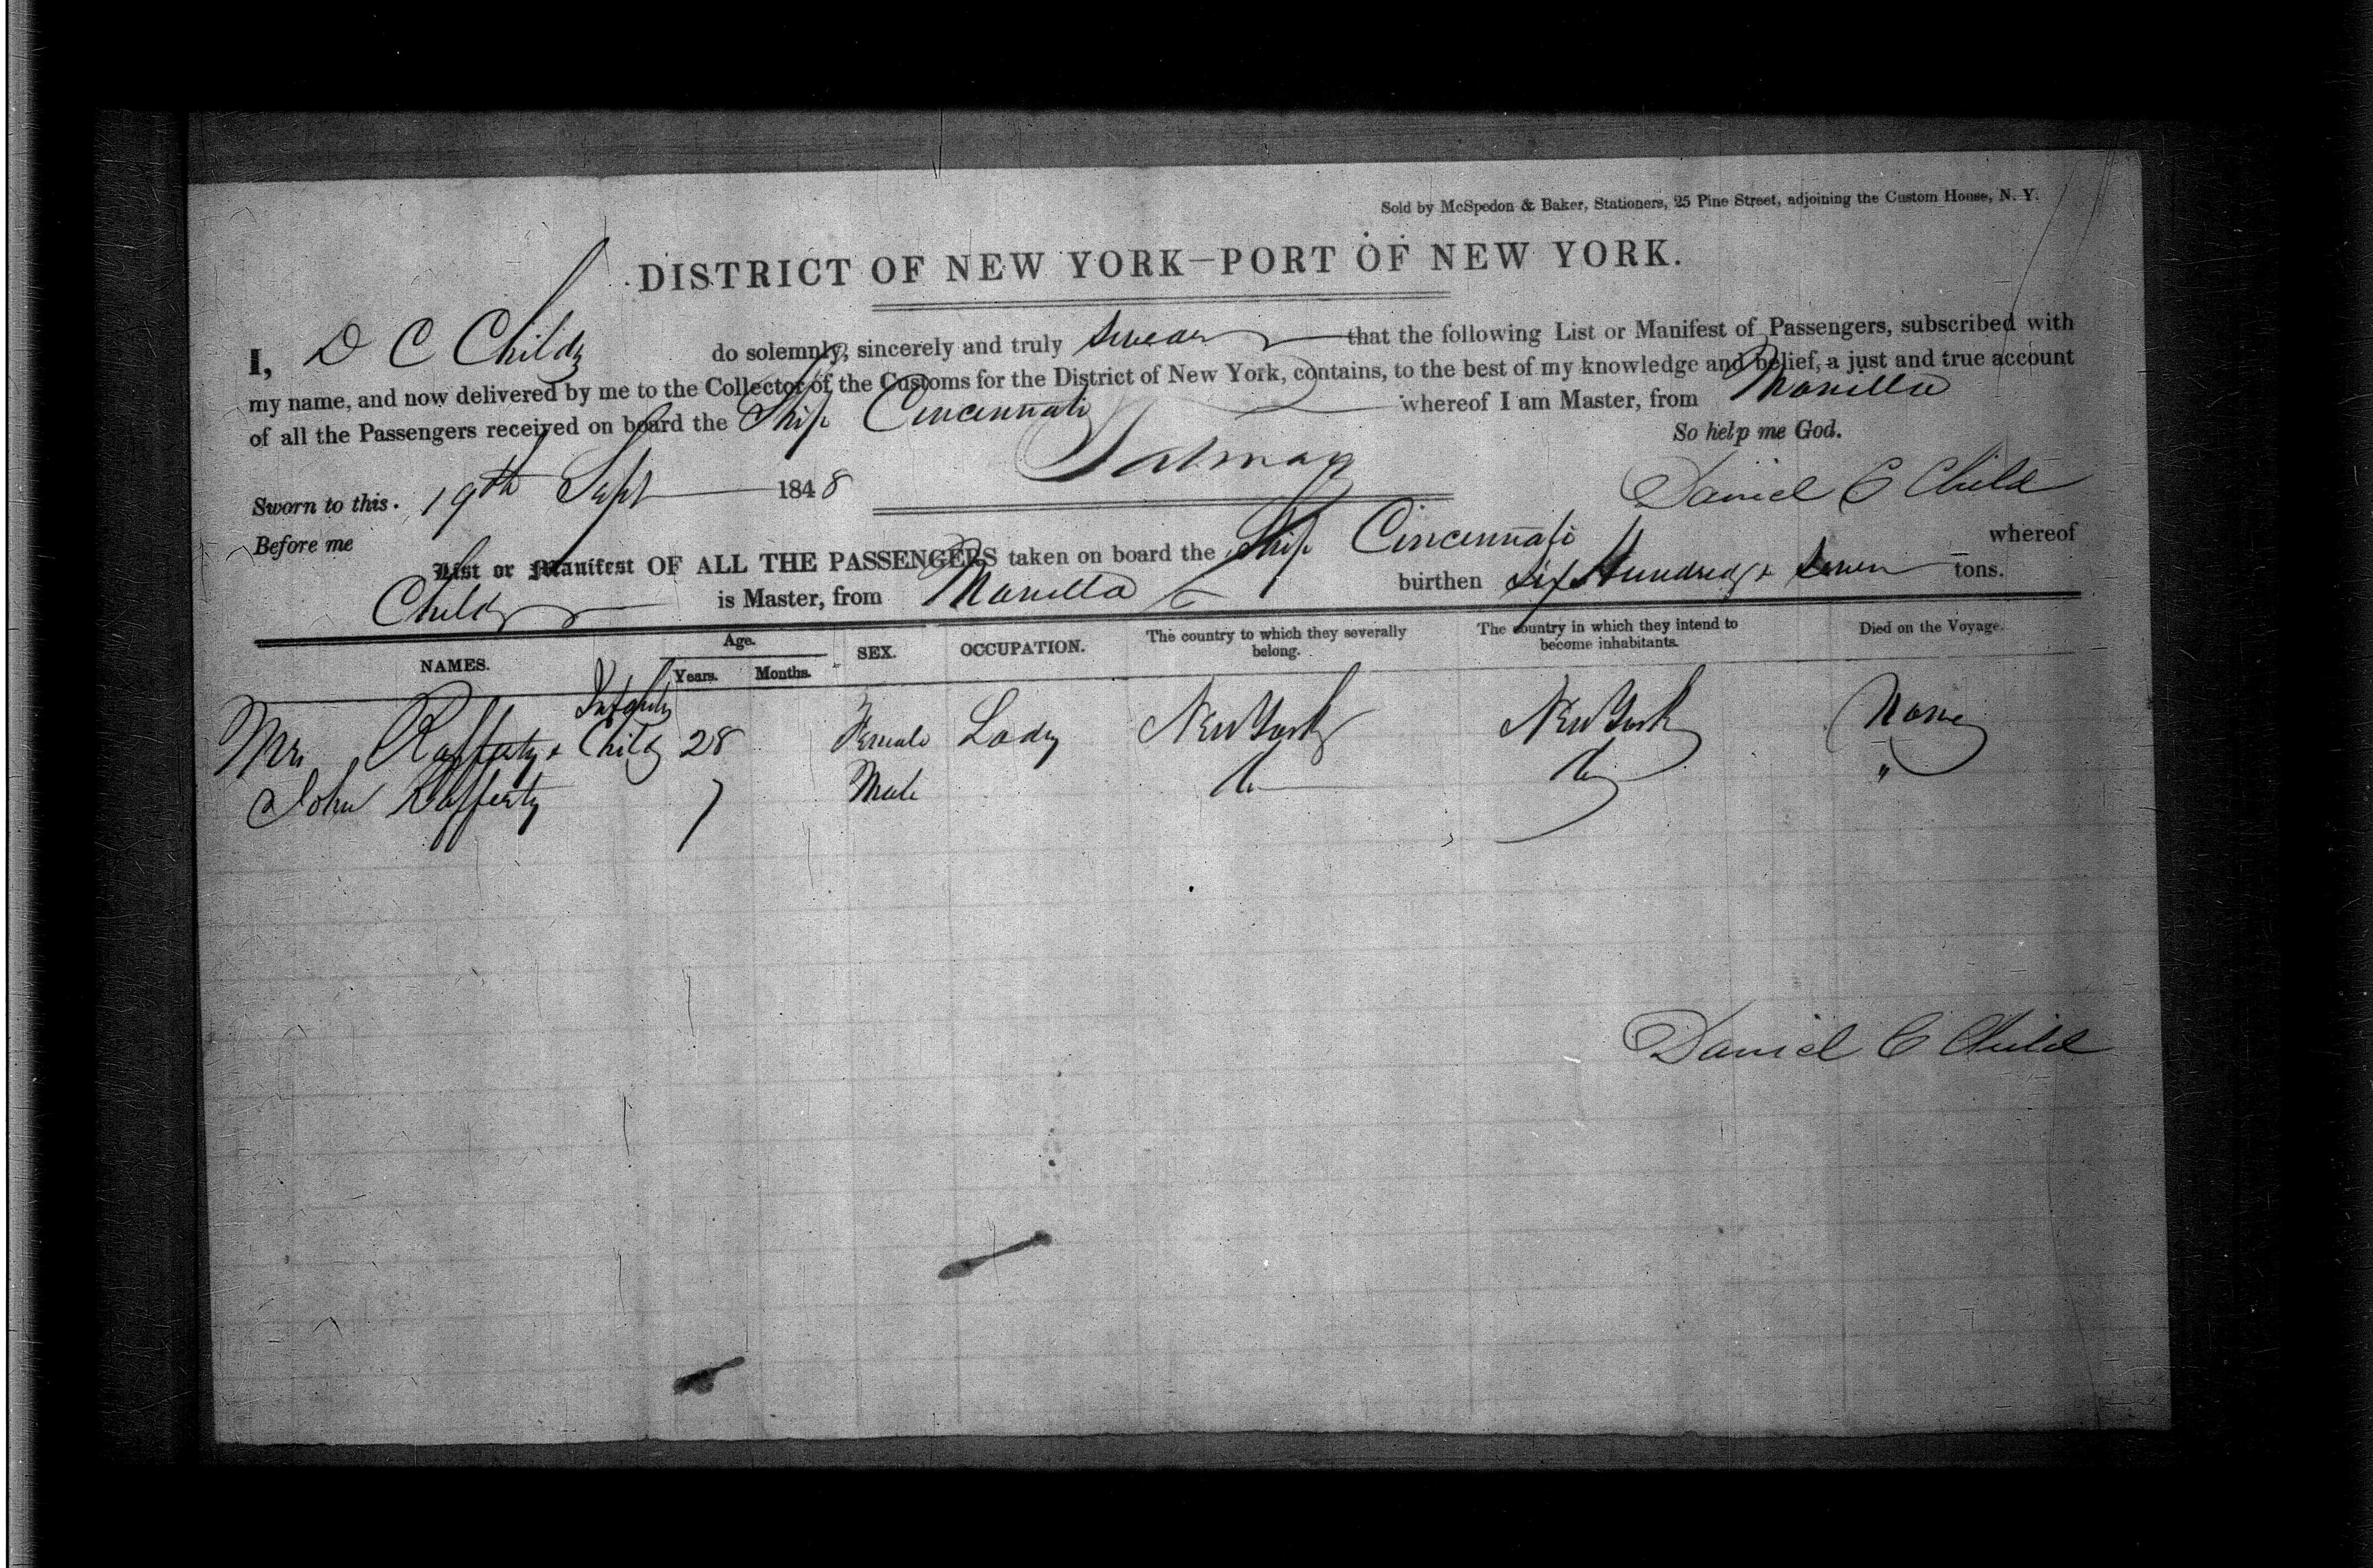 Sold by McSpedon & Baker, Stationers, 25 Pine Street, adjoining the Custom House, N. Y.
DISTRICT OF NEW YORK—PORT OF NEW YORK.
I, D C Child do solemnly, sincerely and truly swear that the following List or Manifest of Passengers, subscribed with
my name, and now delivered by me to the Collector of the Customs for the District of New York, contains, to the best of my knowledge and belief, a just and true account
of all the Passengers received on board the Ship Cincinnati whereof I am Master, from Manilla
So help me God.
Sworn to this 19th Sept 1848
Daniel C Child
Before me
List or Manifest OF ALL THE PASSENGERS taken on board the Ship Cincinnati whereof
Child is Master, from Manilla burthen Six Hundred & Seven tons.
NAMES. Age. Years. Months. SEX. OCCUPATION. The country to which they severally belong. The country in which they intend to become inhabitants. Died on the Voyage.
Infant
Mrs Rafferty & Child 28 Female Lady New York New York None
John Rafferty 7 Male "
Daniel C Child